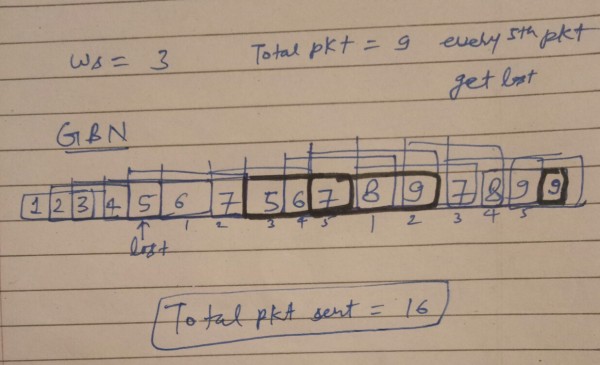 ws = 3 Total pkt = 9 every 5th pkt
get lost
GBN
1 2 3 4 5 6 7 5 6 7 8 9 7 8 9 9
1 2 3 4 5 1 2 3 4 5
lost
Total pkt sent = 16